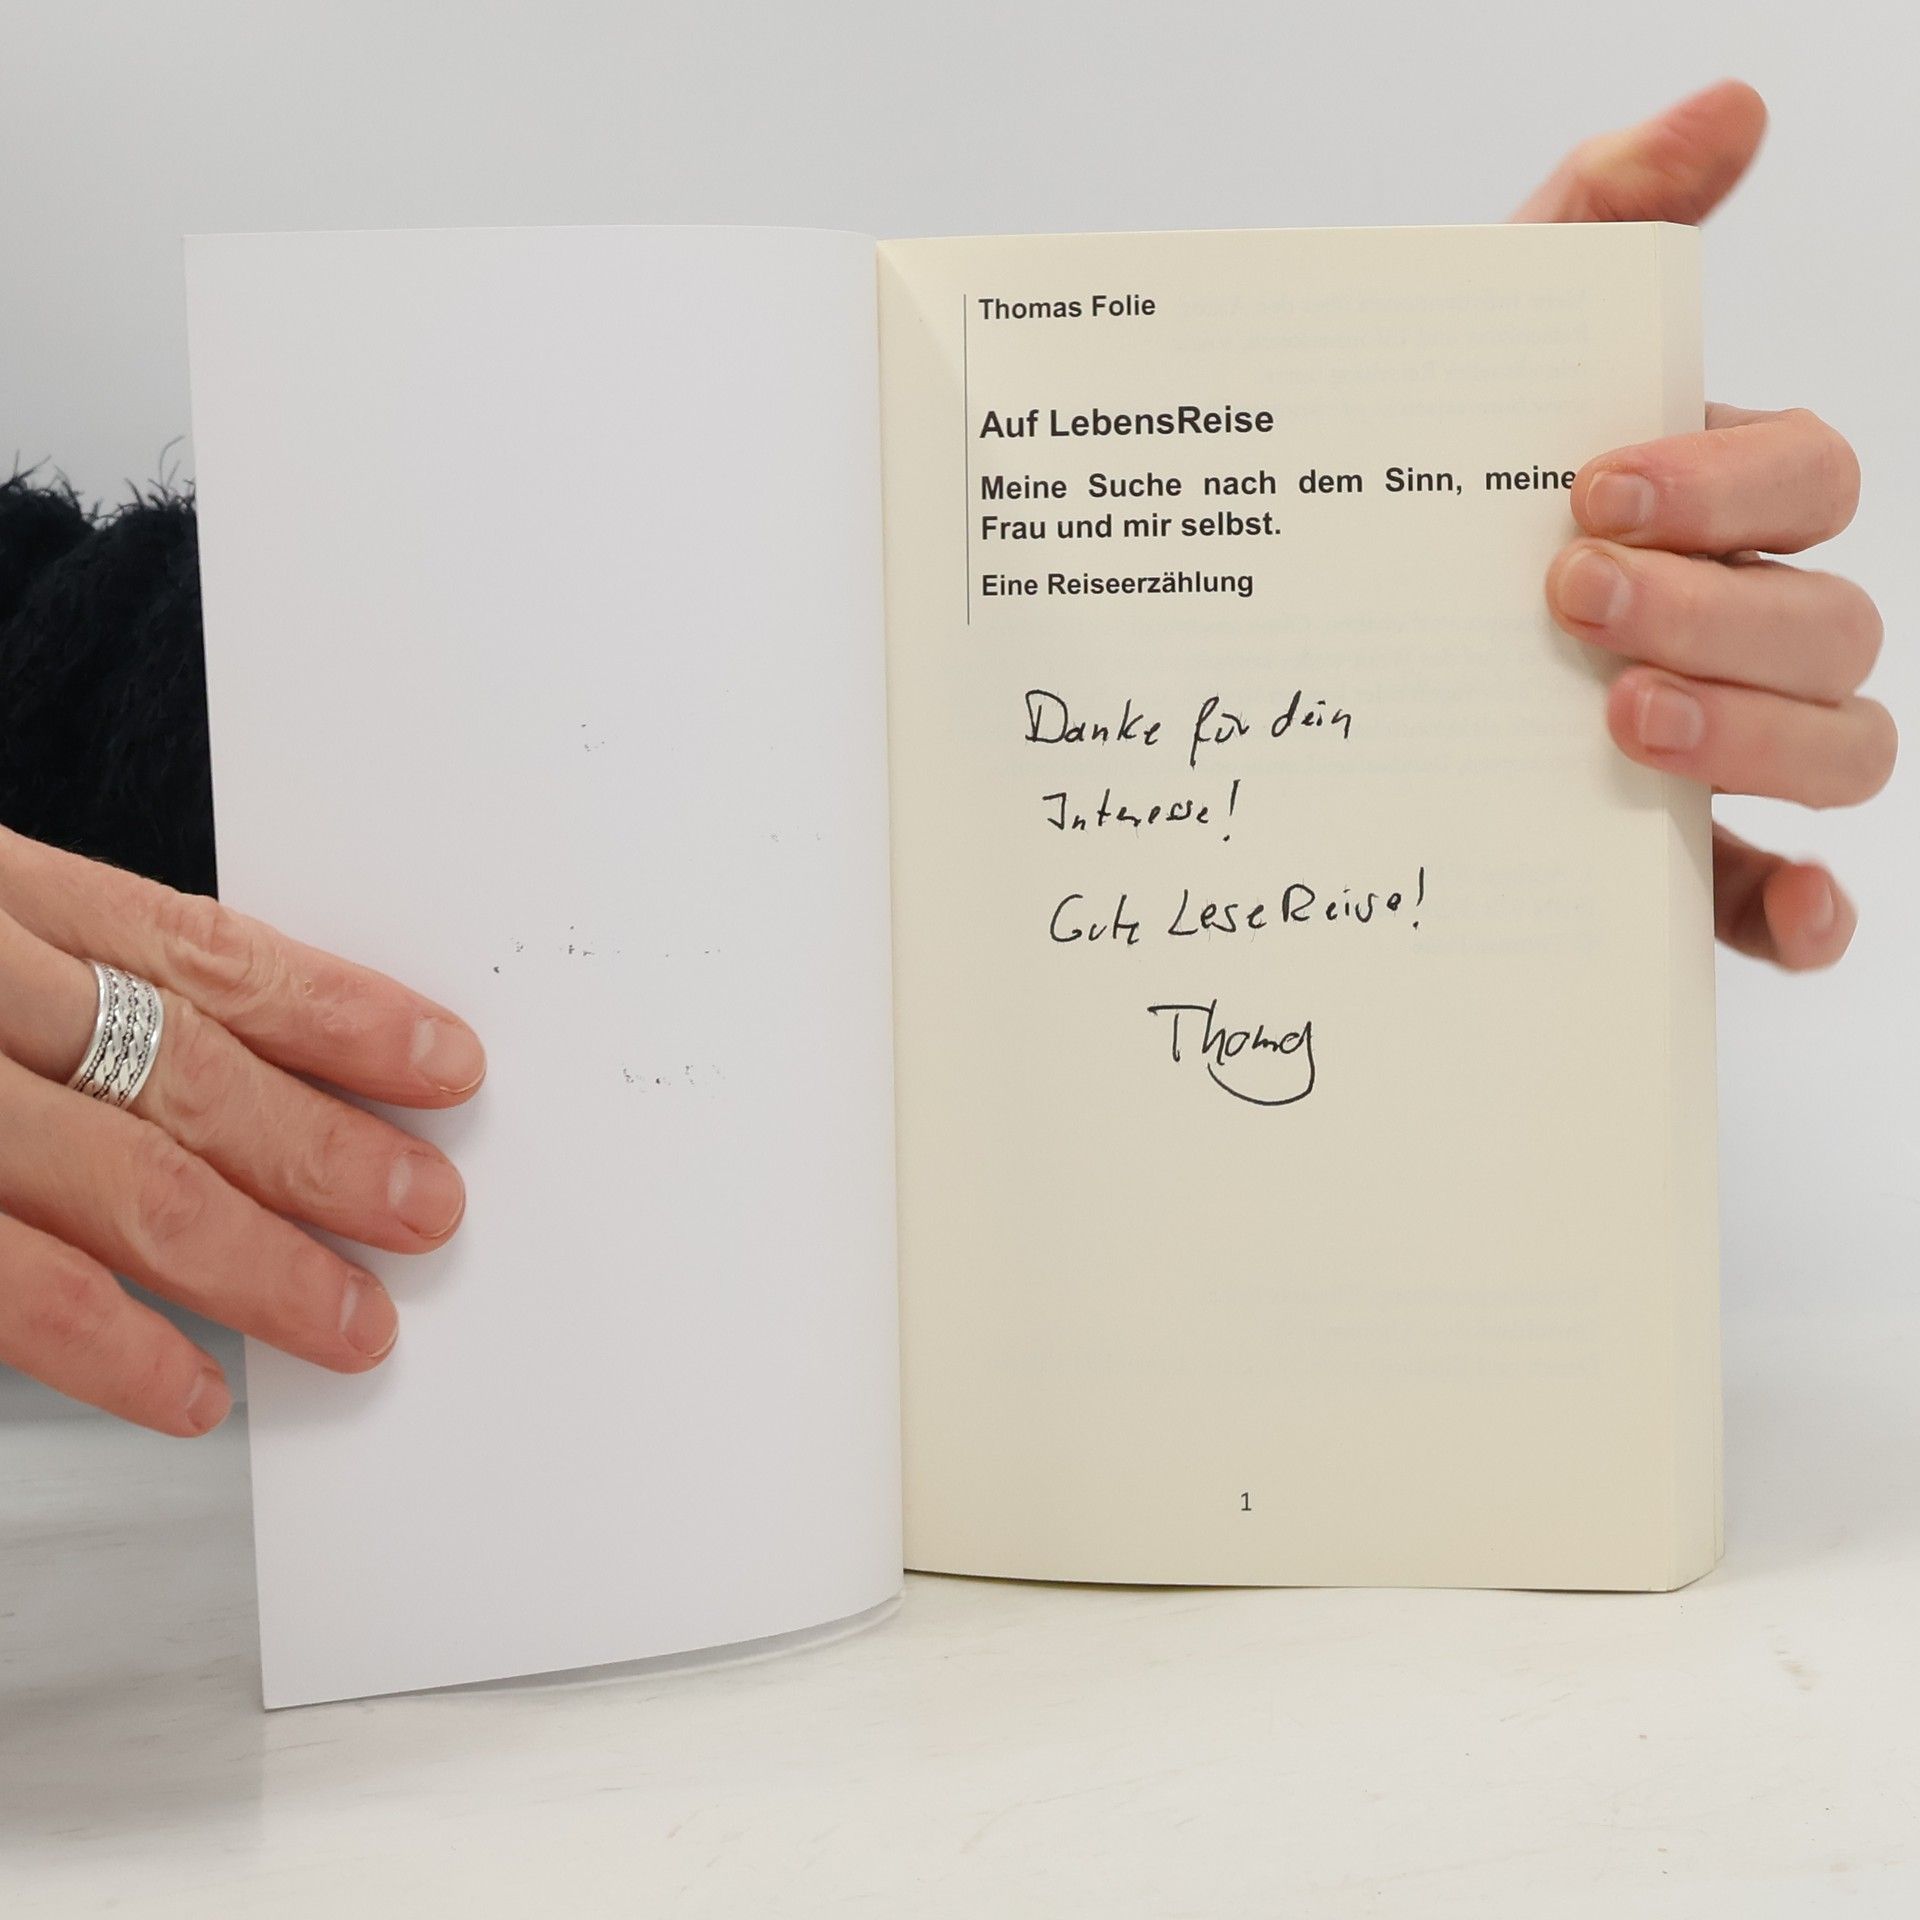 Thomas Folie
Auf LebensReise
Meine Suche nach dem Sinn, meine
Frau und mir selbst.
Eine Reiseerzählung
Danke für dein
Interesse!
Gute LeseReise!
Thomas
1